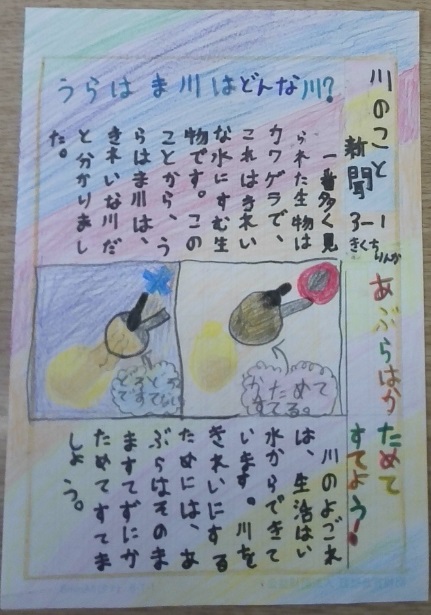 川のこと
新聞
3-1
きくち りんか
うらはま川はどんな川?
一番多く見
られた生物は
カワゲラで、
これはきれい
な水にすむ生
物です。この
ことから、う
らはま川は、
きれいな川だ
と分かりまし
た。
あぶらはかためて
すてよう!
かためて
すてる。
川のよごれ
は、生活はい
水からできて
います。川を
きれいにする
ためには、あ
ぶらはそのま
ますてずにか
ためてすてま
しょう。